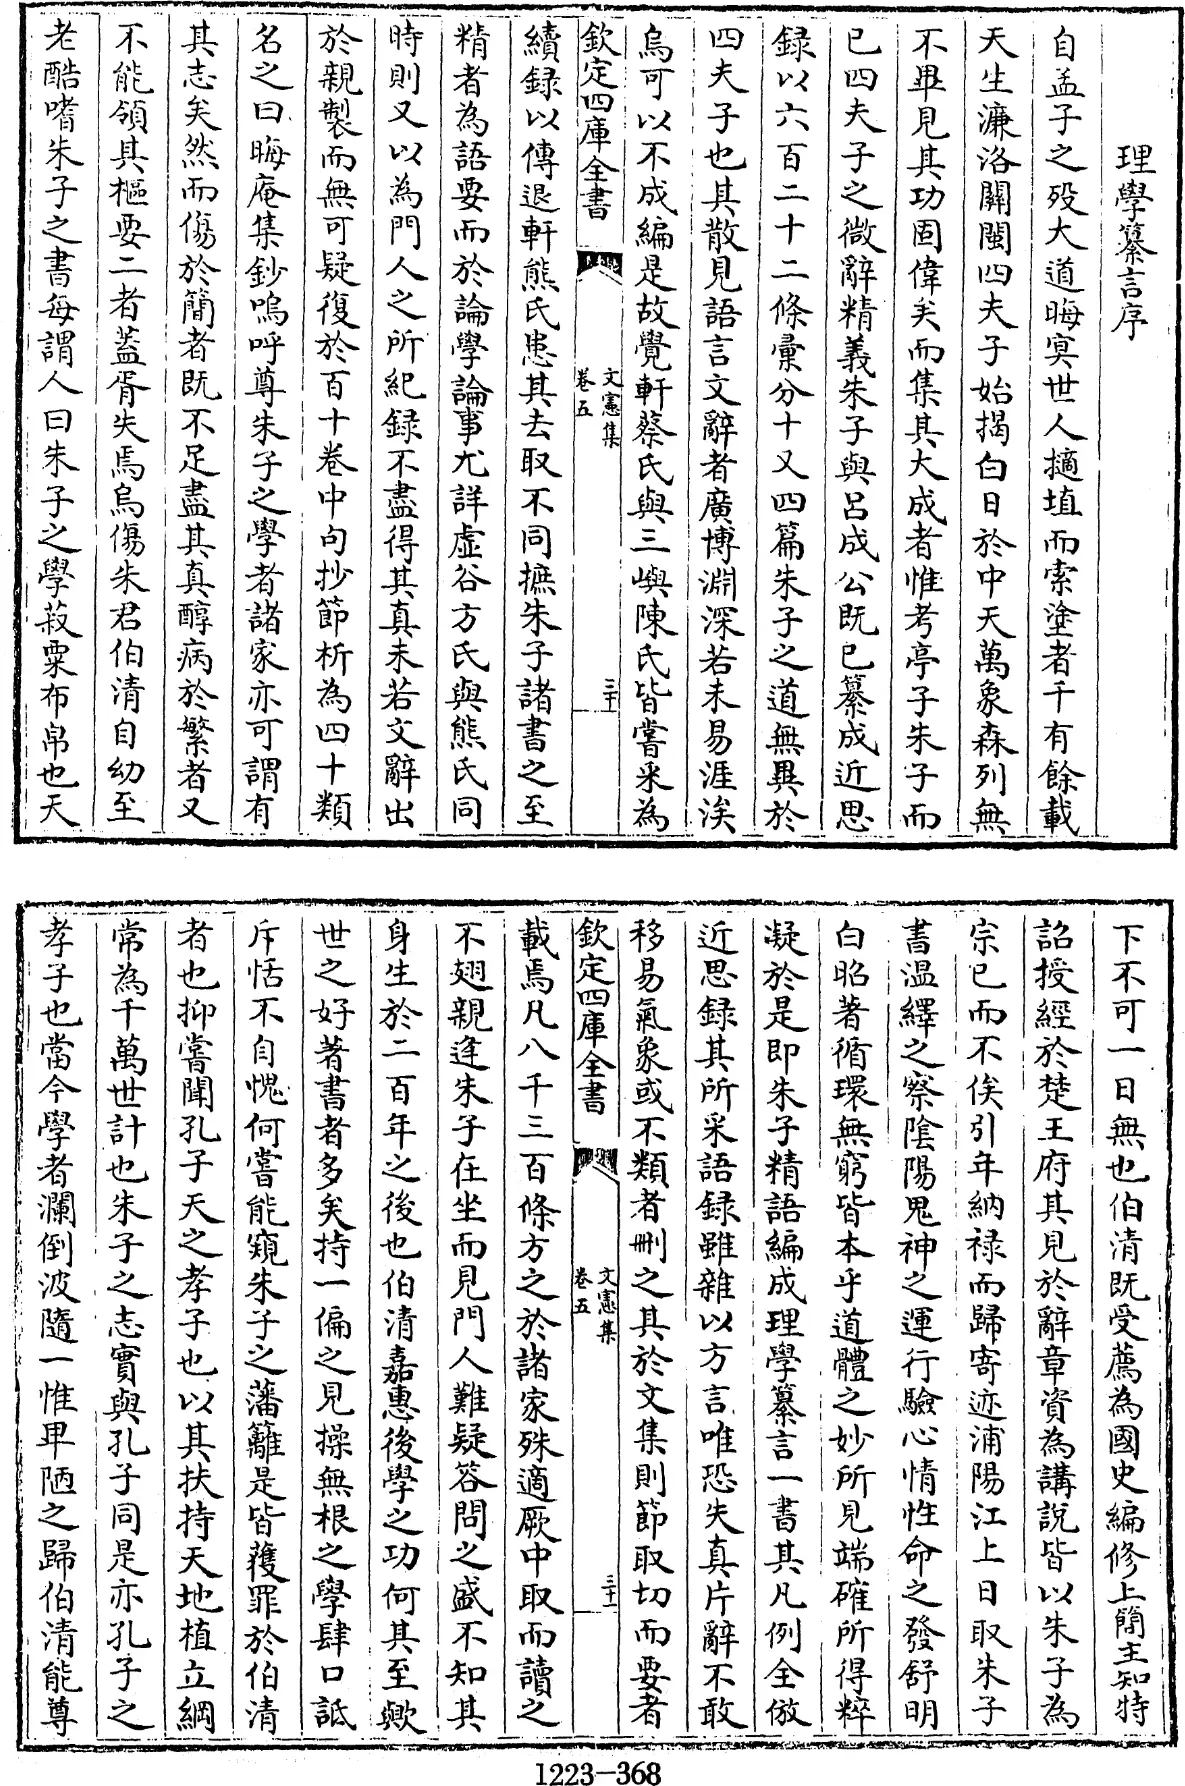 理學纂言序
自孟子之殁大道晦冥世人擿埴而索塗者千有餘載
天生濂洛關閩四夫子始揭白日於中天萬象森列無
不畢見其功固偉矣而集其大成者惟考亭子朱子而
已四夫子之微辭精義朱子與吕成公既已纂成近思
録以六百二十二條彚分十又四篇朱子之道無異於
四夫子也其散見語言文辭者廣博淵深若未易涯涘
烏可以不成編是故覺軒蔡氏與三嶼陳氏皆嘗采為
欽定四庫全書 文憲集 卷五 三十
續録以傳退軒熊氏患其去取不同摭朱子諸書之至
精者為語要而於論學論事尤詳虚谷方氏與熊氏同
時則又以為門人之所紀録不盡得其真未若文辭出
於親製而無可疑復於百十卷中句抄節析為四十類
名之曰晦庵集鈔嗚呼尊朱子之學者諸家亦可謂有
其志矣然而傷於簡者既不足盡其真醇病於繁者又
不能領其樞要二者蓋胥失焉烏傷朱君伯清自幼至
老酷嗜朱子之書每謂人曰朱子之學菽粟布帛也天
下不可一日無也伯清既受薦為國史編修上簡主知特
詔授經於楚王府其見於辭章資為講説皆以朱子為
宗已而不俟引年納禄而歸寄迹浦陽江上日取朱子
書温繹之察陰陽鬼神之運行驗心情性命之發舒明
白昭著循環無窮皆本乎道體之妙所見端確所得粹
凝於是即朱子精語編成理學纂言一書其凡例全倣
近思録其所采語録雖雜以方言唯恐失真片辭不敢
移易氣象或不類者刪之其於文集則節取切而要者
欽定四庫全書 文憲集 卷五 三十一
載焉凡八千三百條方之於諸家殊適厥中取而讀之
不翅親逢朱子在坐而見門人難疑答問之盛不知其
身生於二百年之後也伯清嘉惠後學之功何其至歟
世之好著書者多矣持一偏之見操無根之學肆口詆
斥恬不自愧何嘗能窺朱子之藩籬是皆獲罪於伯清
者也抑嘗聞孔子天之孝子也以其扶持天地植立綱
常為千萬世計也朱子之志實與孔子同是亦孔子之
孝子也當今學者瀾倒波隨一惟卑陋之歸伯清能尊
1223-368